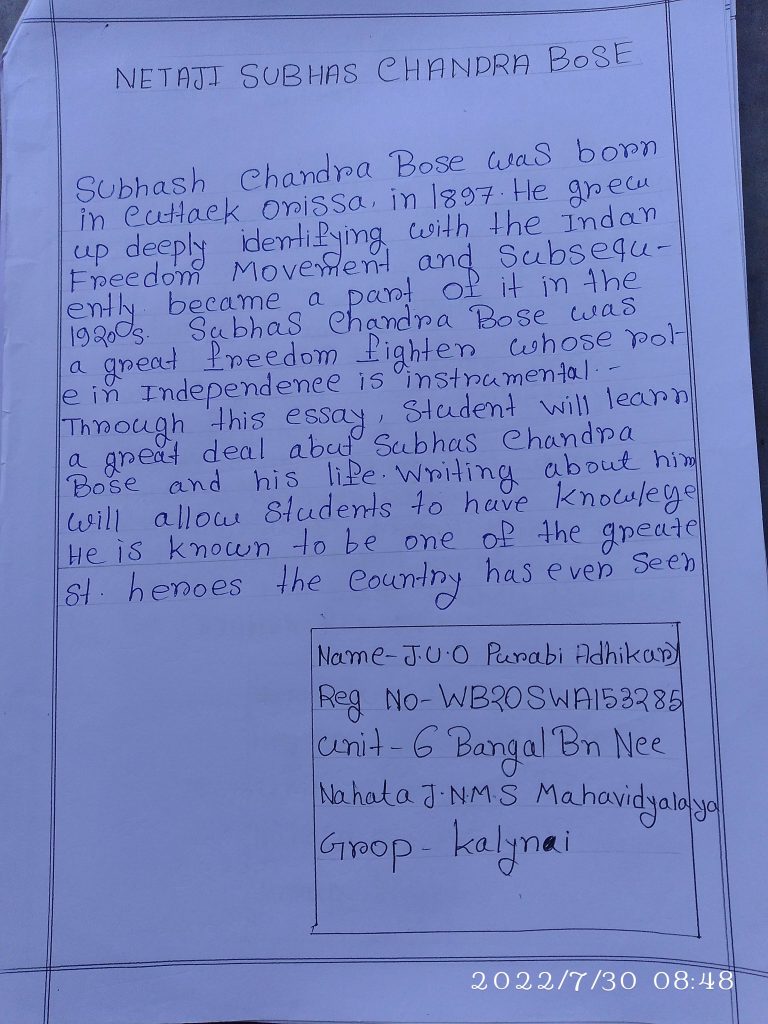 NETAJI SUBHAS CHANDRA BOSE
Subhash Chandra Bose was born
in Cuttack Orissa, in 1897. He grew
up deeply identifying with the Indan
Freedom Movement and Subsequ-
ently became a part of it in the
1920s. Subhas Chandra Bose was
a great freedom fighter whose rol-
e in Independence is instrumental.-
Through this essay, Student will learn
a great deal abut Subhas Chandra
Bose and his life. Writing about him
will allow Students to have knowlege
He is known to be one of the greate
st. heroes the country has ever seen
Name- J.U.O Purabi Adhikary
Reg No- WB20SWA153285
Unit - 6 Bangal Bn Ncc
Nahata J.N.M.S Mahavidyalaya
Grop - kalynai
2022/7/30 08:48